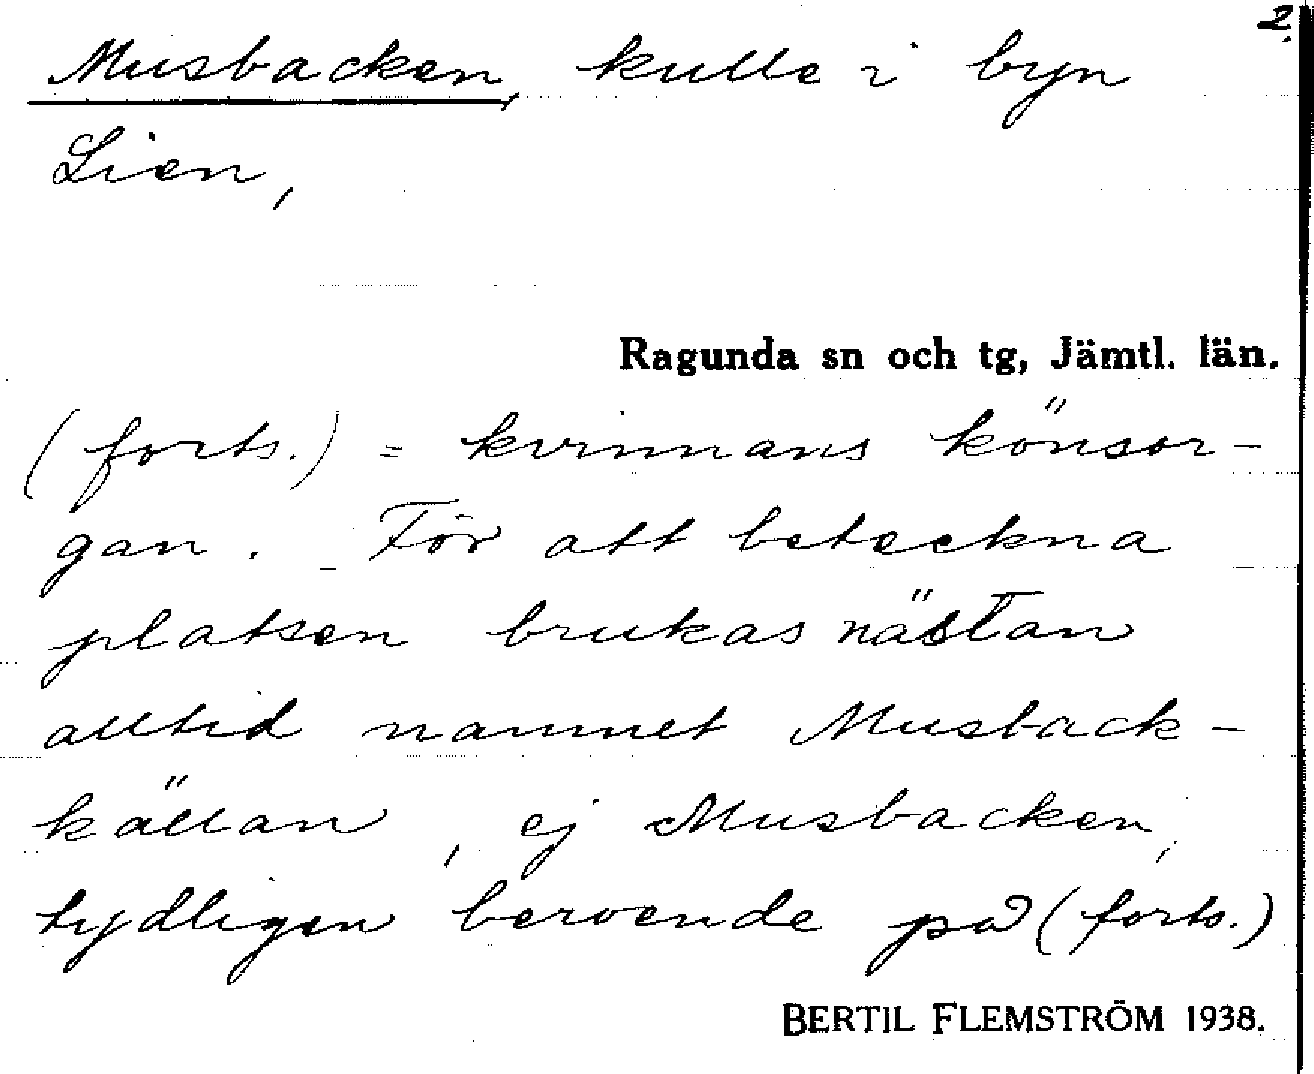 2.
Musbacken, kulle i byn
Lien,
Ragunda sn och tg, Jämtl. län.
(forts.) = kvinnans könsor-
gan. För att beteckna
platsen brukas nästan
alltid namnet Musback-
källan, ej Musbacken,
tydligen beroende på (forts.)
BERTIL FLEMSTRÖM 1938.